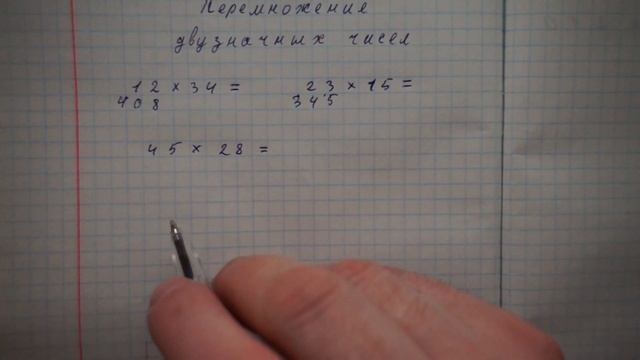 Перемножение
двузначных чисел
12 × 34 = 23 × 15 =
408 345
45 × 28 =